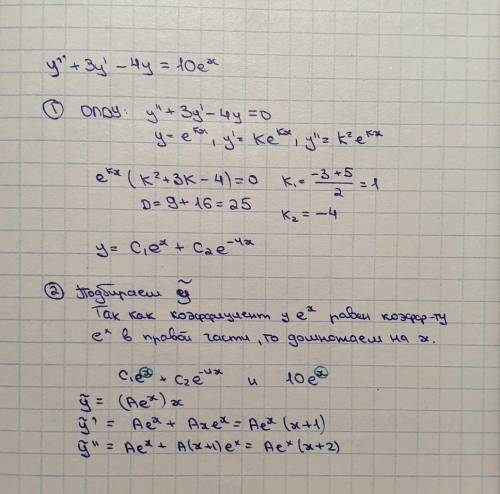 y'' + 3y' - 4y = 10eˣ
① ОЛОУ: y'' + 3y' - 4y = 0
y = eᵏˣ, y' = keᵏˣ, y'' = k²eᵏˣ
eᵏˣ (k² + 3k - 4) = 0 k₁ = (-3 + 5)/2 = 1
D = 9 + 16 = 25 k₂ = -4
y = C₁eˣ + C₂e⁻⁴ˣ
② Подбираем ỹ
Так как коэффициент у eˣ равен коэфф-ту
eˣ в правой части, то домножаем на x.
C₁eˣ + C₂e⁻⁴ˣ и 10eˣ
ỹ = (Aeˣ)x
ỹ' = Aeˣ + Axeˣ = Aeˣ (x+1)
ỹ'' = Aeˣ + A(x+1)eˣ = Aeˣ (x+2)